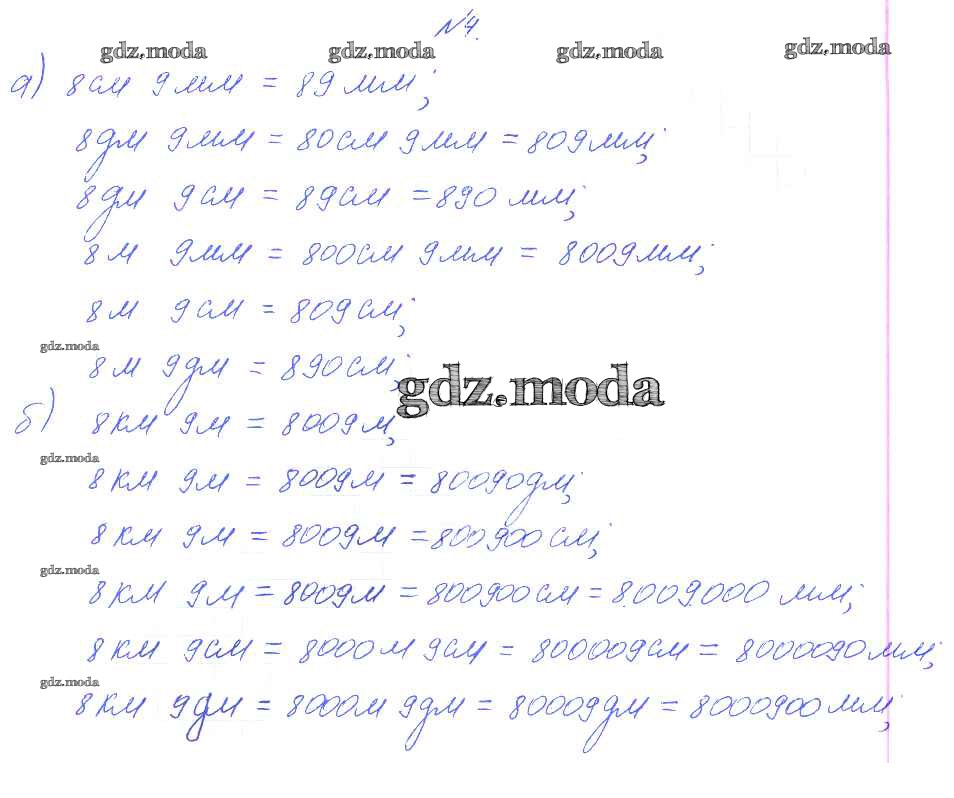 №4.
gdz.moda gdz.moda gdz.moda gdz.moda
а) 8см 9мм = 89мм;
8дм 9мм = 80см 9мм = 809мм;
8дм 9см = 89см = 890 мм;
8м 9мм = 800см 9мм = 8009мм;
8м 9см = 809см;
gdz.moda
8м 9дм = 890см;
gdz.moda
б) 8км 9м = 8009м;
gdz.moda
8км 9м = 8009м = 80090дм;
8км 9м = 8009м = 800900см;
gdz.moda
8км 9м = 8009м = 800900см = 8.009.000 мм;
8км 9см = 8000м 9см = 800009см = 8000090мм;
gdz.moda
8км 9дм = 8000м 9дм = 80009дм = 8000900мм;